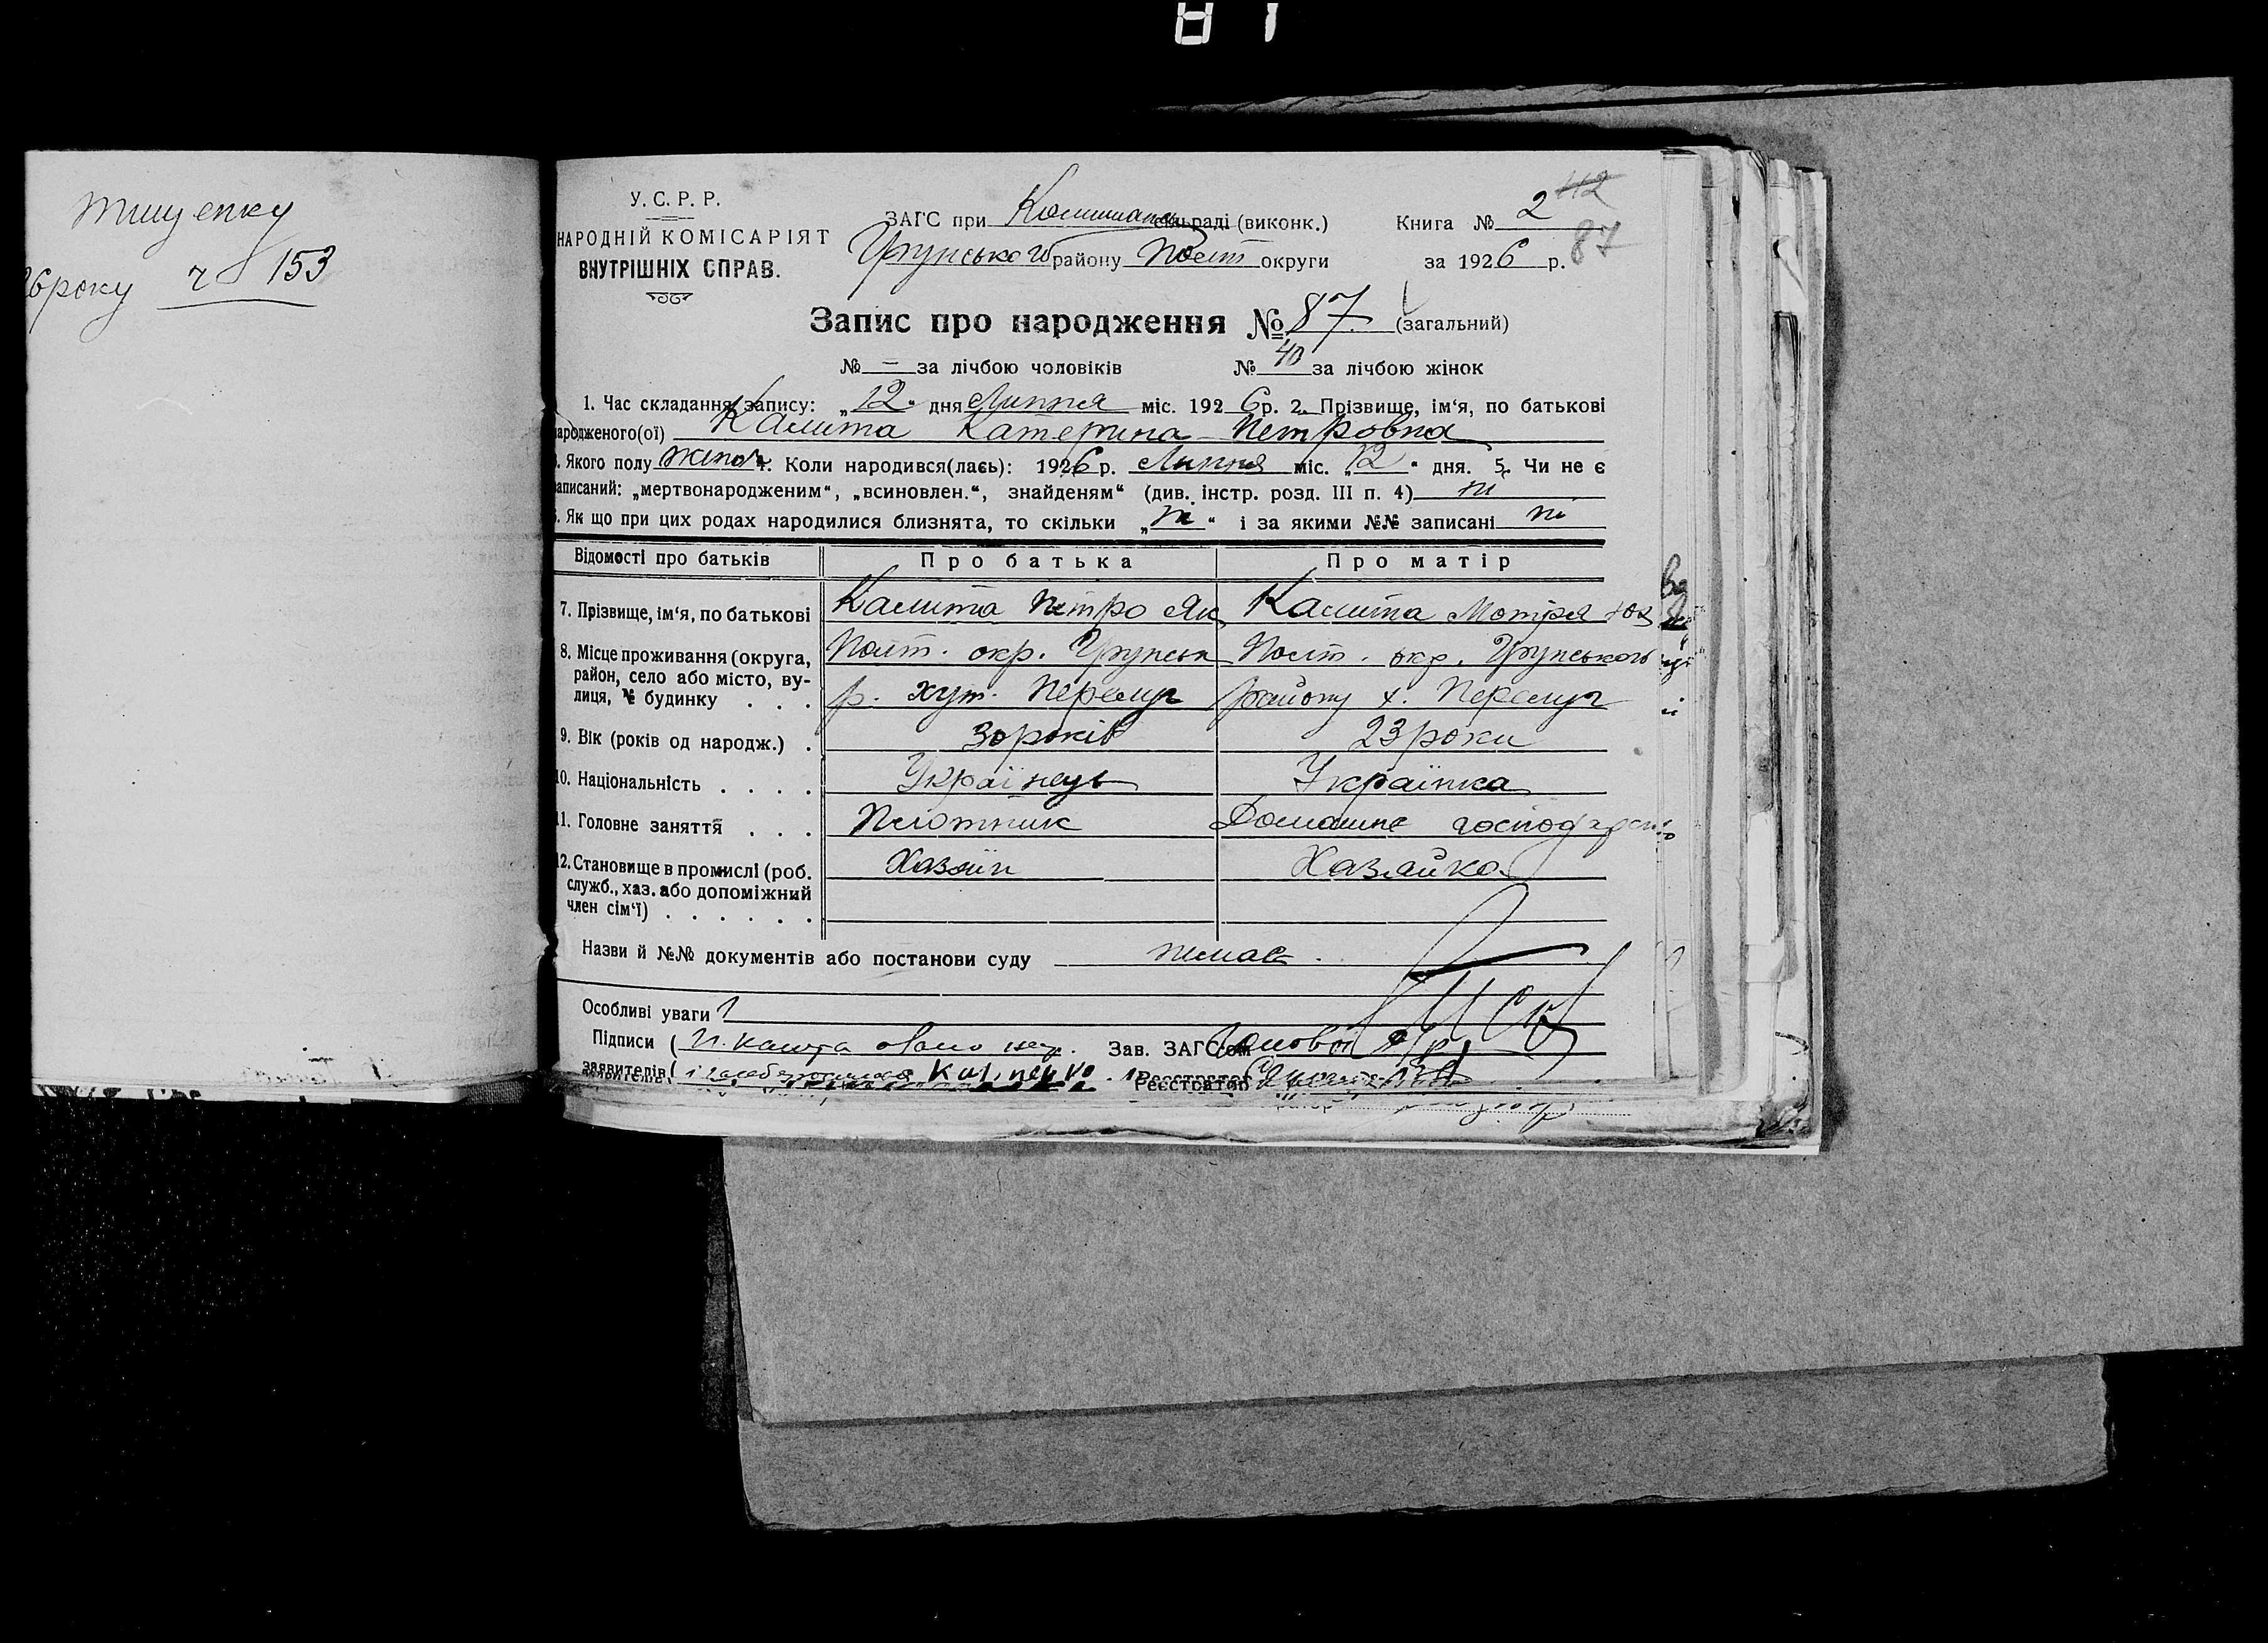 87
Тищенку
26 року ч 153
У. С. Р. Р.
НАРОДНІЙ КОМІСАРІЯТ
ВНУТРІШНІХ СПРАВ.
ЗАГС при сільраді (виконк.)
Грунського району Полт округи
Книга № 2 112
за 1926 р. 87
Запис про народження № 87 (загальний)
№ — за лічбою чоловіків № 40 за лічбою жінок
1. Час складання запису: „12“ дня Липня міс. 1926 р. 2. Прізвище, ім‘я, по батькові
народженого(ої) Калита Катерина Петровна
3. Якого полу жіноч 4. Коли народився(лась): 1926 р. Липня міс. „12“ дня. 5. Чи не є
записаний: „мертвонародженим“, „всиновлен.“, знайденям“ (див. інстр. розд. III п. 4) ні
6. Як що при цих родах народилися близнята, то скільки „ні“ і за якими №№ записані ні
Відомості про батьків Про батька Про матір
7. Прізвище, ім‘я, по батькові Калита Петро Як Калита Мотря
8. Місце проживання (округа, Полт. окр. Грунськ Полт. окр. Грунського
район, село або місто, ву- р. хут. Перелуг району х. Перелуг
лиця, № будинку . . .
9. Вік (років од народж.) . 30 років 23 роки
10. Національність . . . . Українець Українка
11. Головне заняття . . . Плотник Домашнє господарство
12. Становище в промислі (роб. Хазяїн Хазяйка
служб., хаз. або допоміжний
член сім‘ї) . . . . . .
Назви й №№ документів або постанови суду немає.
Особливі уваги
Підписи ( Зав. ЗАГС‘ом
заявителів ( Реєстратор